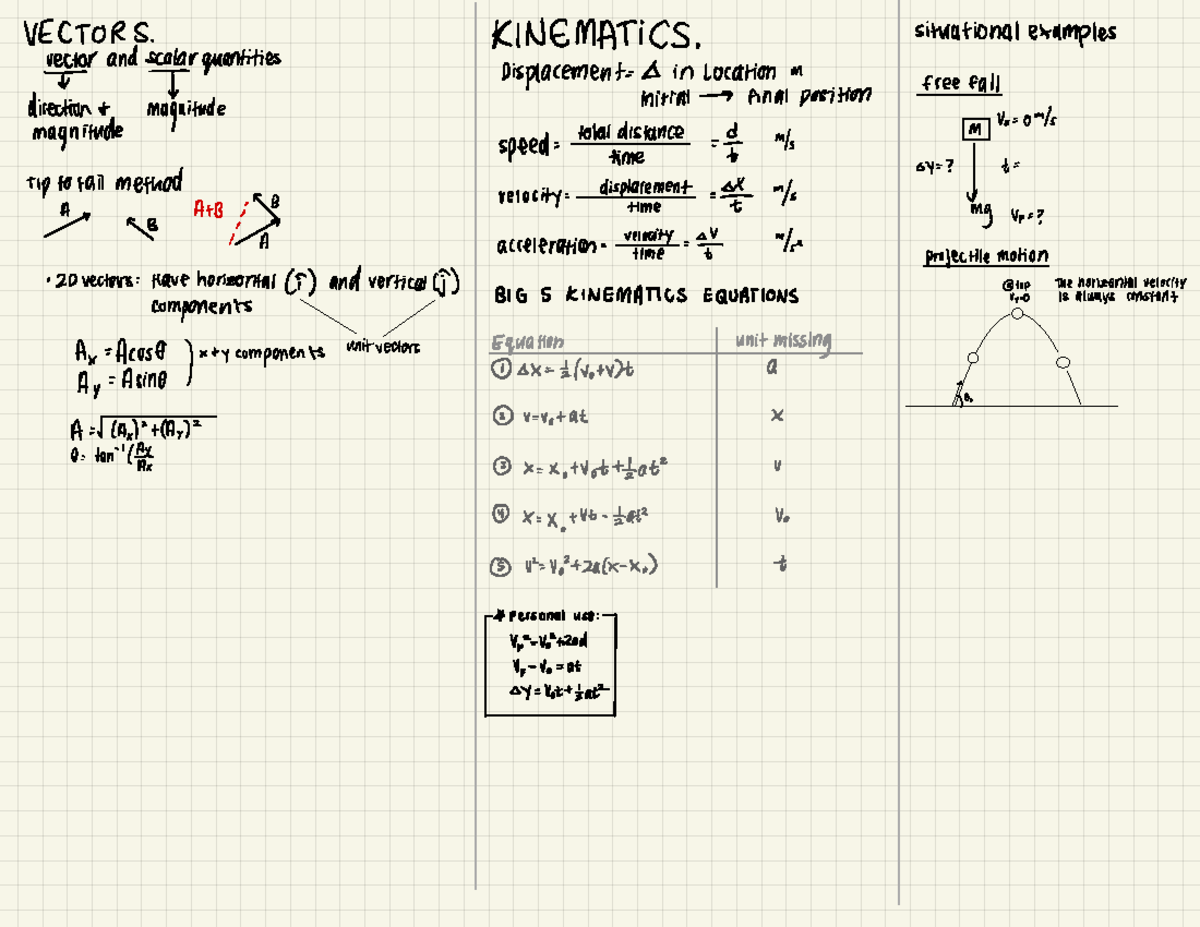 VECTORS.
vector and scalar quantities
direction + magnitude
magnitude
Tip to tail method
A
B
A+B
B
A
• 2D vectors: Have horizontal (î) and vertical (ĵ)
components
unit vectors
Aₓ = Acosθ
Aᵧ = Asinθ
x+y components
A = √(Aₓ)² + (Aᵧ)²
θ = tan⁻¹(Ay/Ax
KINEMATICS.
Displacement = Δ in Location m
initial → final position
speed = total distance/time = d/t m/s
velocity = displacement/time = ΔX/t m/s
acceleration = velocity/time = ΔV/t m/s²
BIG 5 KINEMATICS EQUATIONS
Equation unit missing
① ΔX = ½(V₀+V)t a
② V=V₀+at x
③ X = X₀+V₀t+½at² v
④ X = X₀+Vt-½at² V₀
⑤ V²=V₀²+2a(X-X₀) t
* Personal use:
V_F²=V₀²+2ad
V_F-V₀=at
ΔY=V₀t+½at²
situational examples
free fall
M
V₀=0 m/s
ΔY=?
t=
mg
V_F=?
projectile motion
@top
Vᵧ=0
The horizontal velocity
is always constant
θ